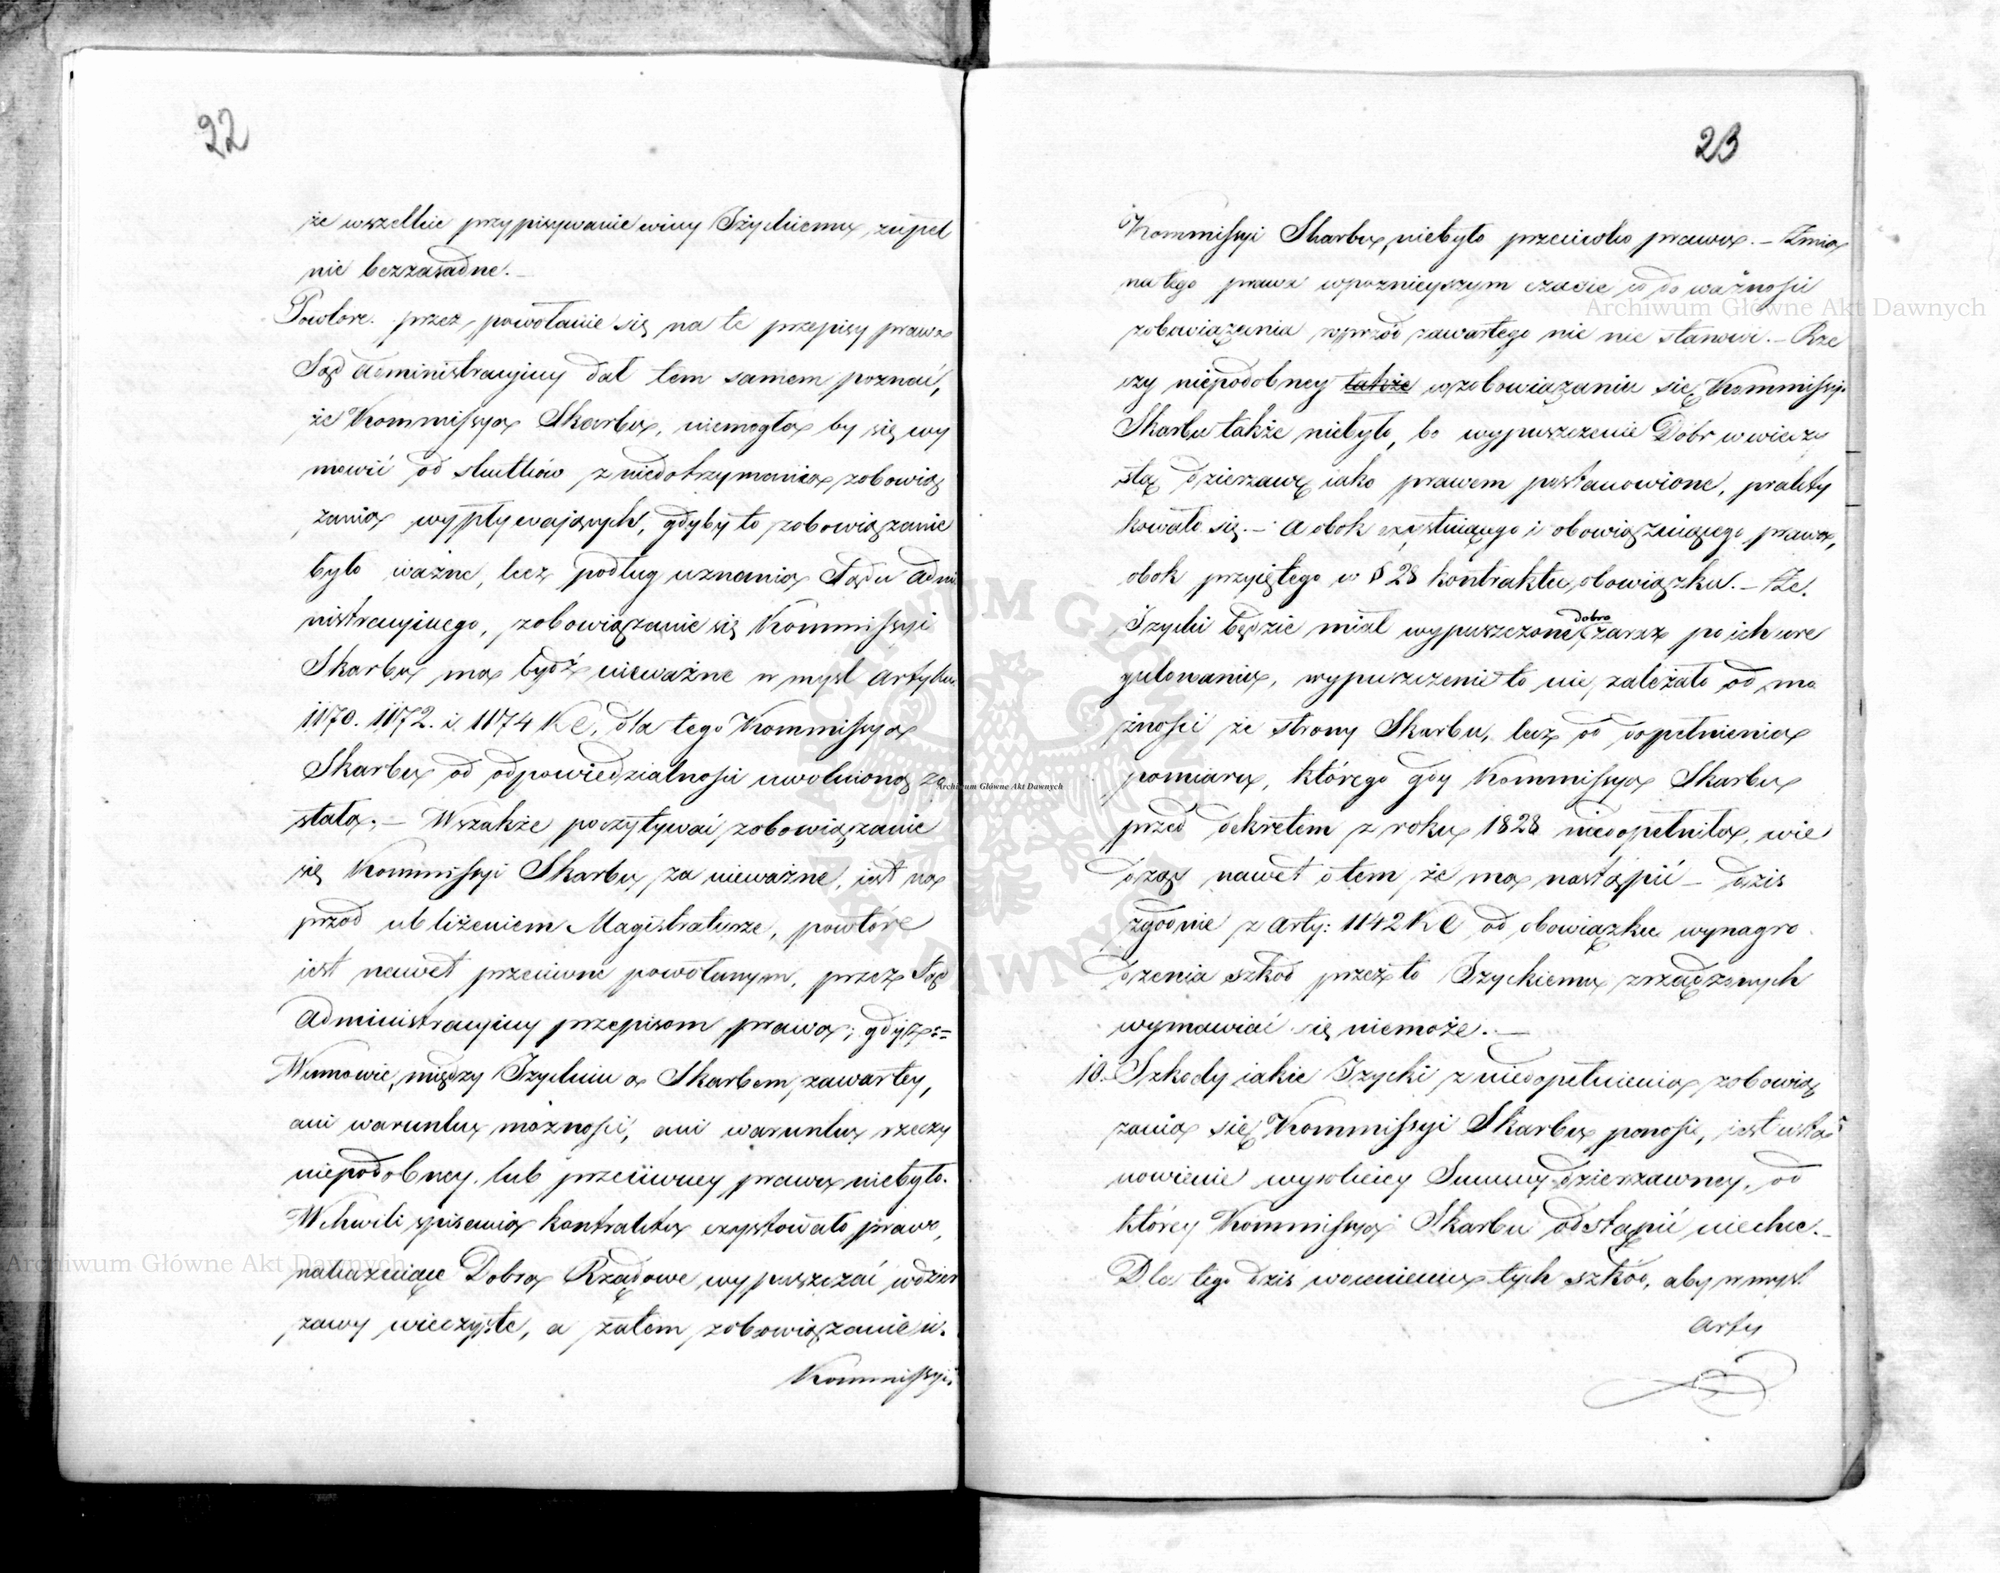 22
że wszelkie przypisywanie winy Iżyckiemu, zupeł
nie bezzasadne. —
Powtore. przez powołanie się na te przepisy prawa
Sąd Administracyiny dał tem samem poznać,
że Kommissya Skarbu, niemogła by się wy
mowić od skutków z niedotrzymania zobowią
zania wypływaiących, gdyby to zobowiązanie
było ważne, lecz podług uznania Sądu Admi
nistracyinego, zobowiązanie się Kommissyi
Skarbu ma bydź nieważne w myśl Artyku
1170. 1172. i 1174 KC, dla tego Kommissya
Skarbu od odpowiedzialności uwolnioną zo
stała. — Wszakże poczytywać zobowiązanie
się Kommissyi Skarbu za nieważne, iest na
przód ubliżeniem Magistraturze, powtóre
iest nawet przeciwne powołanym, przez Sąd
Administracyiny przepisom prawa; gdyż
W umowie, między Izyckim a Skarbem zawartey,
ani warunku możności, ani warunku rzeczy
niepodobney, lub przeciwney prawu niebyło.
W chwili spisania kontraktu exystowało prawo,
nakazuiące Dobra Rządowe wypuszczać w dzier
żawy wieczyste, a zatem zobowiązanie
Kommissyi
23
Kommissyi Skarbu, niebyło przeciwko prawu. — Zmia
na tego prawa w poznieyszym czasie co do ważności
zobowiązania wprzód zawartego nic nie stanowi. — Rze
czy niepodobney także w zobowiązaniu się Kommissyi
Skarbu także niebyło, bo wypuszczenie Dóbr w wieczy
stą dzierzawę iako prawem postanowione, prakty
kowało się. — A obok exystuiącego i obowiązuiącego prawa,
obok przyiętego w § 28 kontraktu obowiązku. — Że
dobra
Izycki będzie miał wypuszczone zaraz po ich ure
gulowaniu, wypuszczenie to nie zależało od mo
żności ze strony Skarbu, lecz od dopełnienia
pomiaru, którego gdy Kommissya Skarbu
przed dekretem z roku 1828 niedopełniła, wie
dząc nawet o tem że ma nastąpić — dziś
zgodnie z Arty: 1142 KC od obowiązku wynagro
dzenia szkód przez to Izyckiemu zrządzonych
wymawiać się niemoże. —
10. Szkody iakie Izycki z niedopełnienia zobowią
zania się Kommissyi Skarbu ponosi, iest usta
nowienie wysokiey Summy dzierzawney, od
którey Kommissya Skarbu odstąpić niechce. —
Dla tego dziś ocenienia tych szkód, aby w myśl
Arty